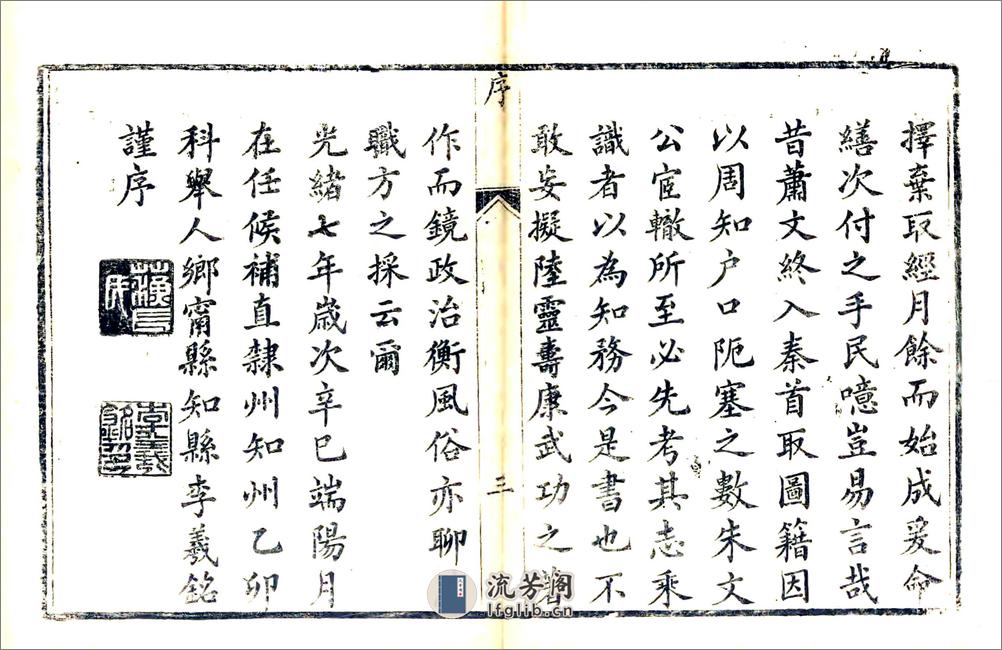 擇棄取經月餘而始成爰命
繕次付之手民噫豈易言哉
昔蕭文終入秦首取圖籍因
以周知户口阨塞之數朱文
公宦轍所至必先考其志乘
識者以為知務今是書也不
敢妄擬陸靈壽康武功之著
序
三
作而鏡政治衡風俗亦聊
職方之採云爾
光緒七年歲次辛巳端陽月
在任候補直隸州知州乙卯
科舉人鄉甯縣知縣李羲銘
謹序
李羲銘印
流芳阁
lfglib.cn